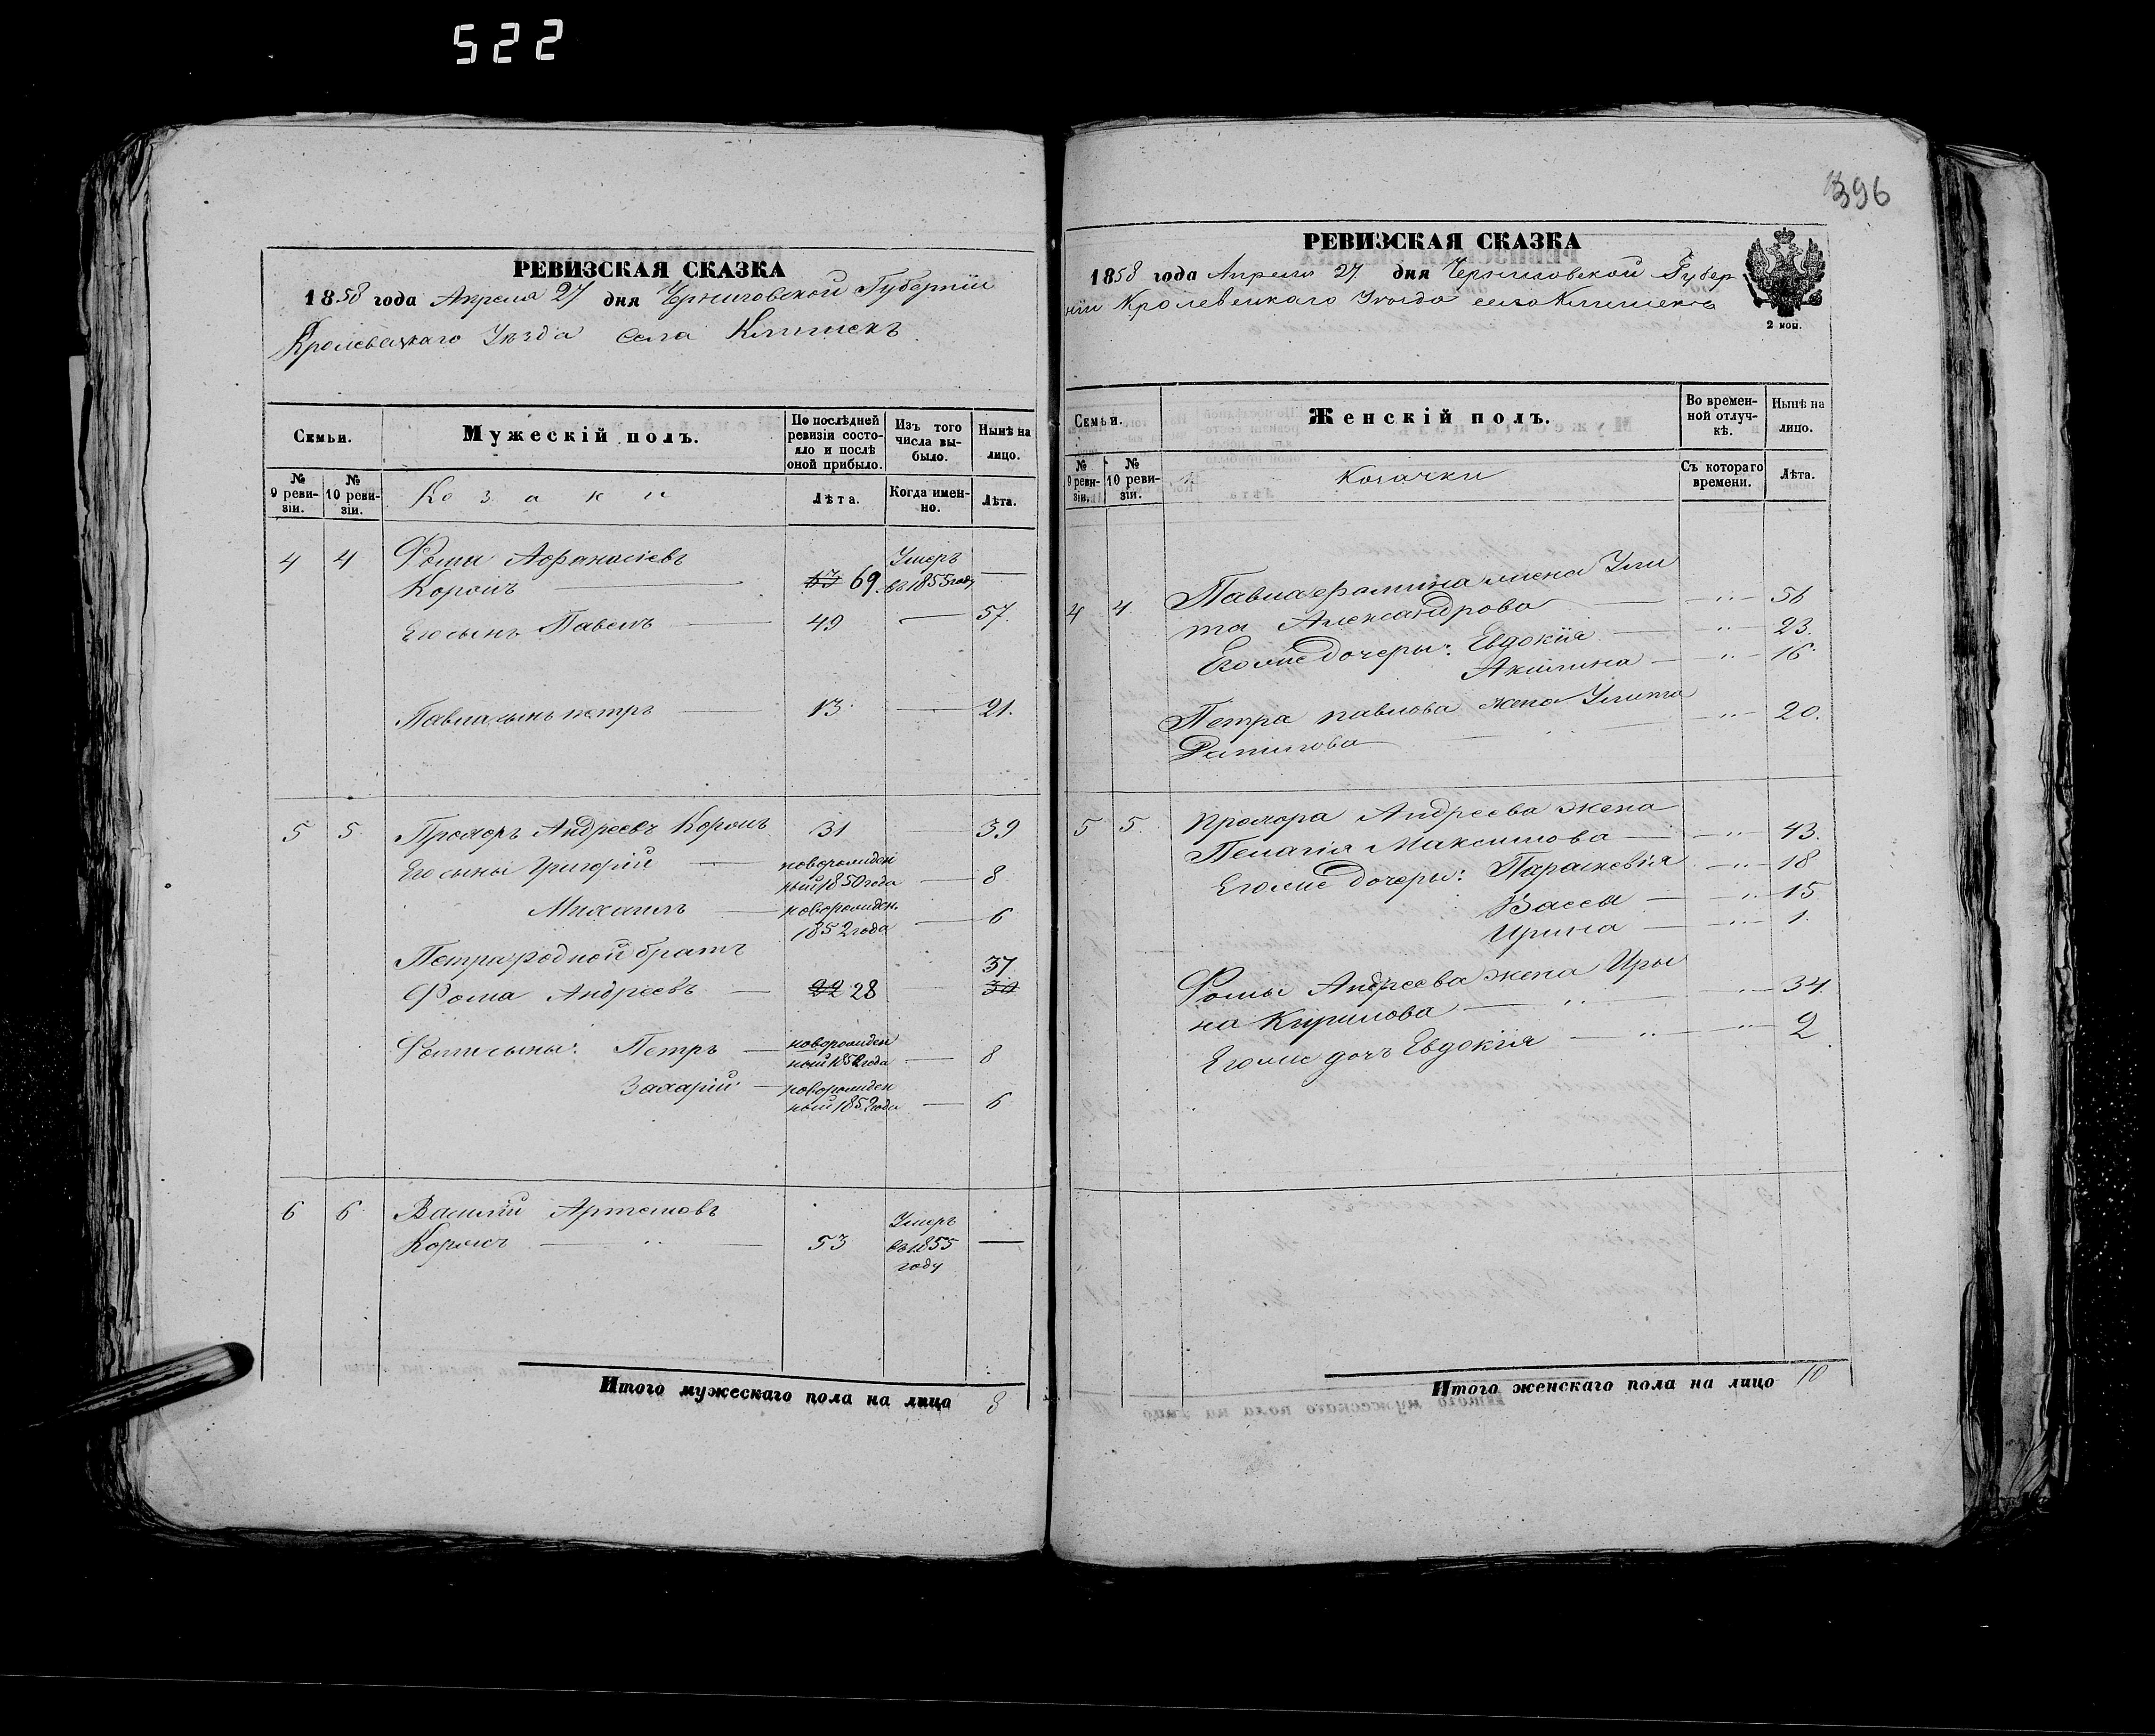 522
РЕВИЗСКАЯ СКАЗКА
1858 года Апреля 27 дня Черниговской Губерніи
Кролевецкаго Уѣзда Села Клишекъ
Семьи.
Мужескій полъ.
По послѣдней ревизіи состояло и послѣ оной прибыло.
Изъ того числа выбыло.
Нынѣ на лицо.
№ 9 ревизіи.
№ 10 ревизіи.
Козаки
Лѣта.
Когда именно.
Лѣта.
4 4 Фома Афанасіевъ
Король 69 Умеръ въ 1855 году —
Его сынъ Павелъ — 49 — 57.
Павла сынъ петръ — 13 — 21.
5 5 Прохоръ Андреевъ Король 31 39
Его сыны Григорій — новорожденный 1850 года — 8
Михаилъ — новорожден. 1852 года — 6
родной братъ 37
Фома Андреевъ — 22 28
Фомы сыны: Петръ — новорожденный года — 8
Захарій — новорожденный 1852 года — 6
6 6 Василій Артемовъ
Король — " — 53 Умеръ въ 1855 году —
Итого мужескаго пола на лицо 8
396
РЕВИЗСКАЯ СКАЗКА
1858 года Апреля 27 дня Черниговской Губер
ніи Кролевецкаго Уезда села Клишекъ
2 коп.
Семьи.
Женскій полъ.
Во временной отлучкѣ.
Нынѣ на лицо.
№ 9 ревизіи.
№ 10 ревизіи.
Козачки
Съ котораго времени.
Лѣта.
4 4 Павла Фомина жена Ули
та Александрова — — " — 56
Его же дочеры: Евдокія — " — 23.
Акилина — — " — 16.
Петра павлова жена Улита — " — 20.
5 5. Прохора Андреева жена
Пелагія Максимова — — " — 43.
Его же дочеры: Параскевія — " — 18
Васса — — " — 15
Ирина — — " — 1.
Фомы Андреева жена Иры
на Кирилова — " — — " — 34.
Его же дочь Евдокія — " — — " — 2
Итого женскаго пола на лицо 10